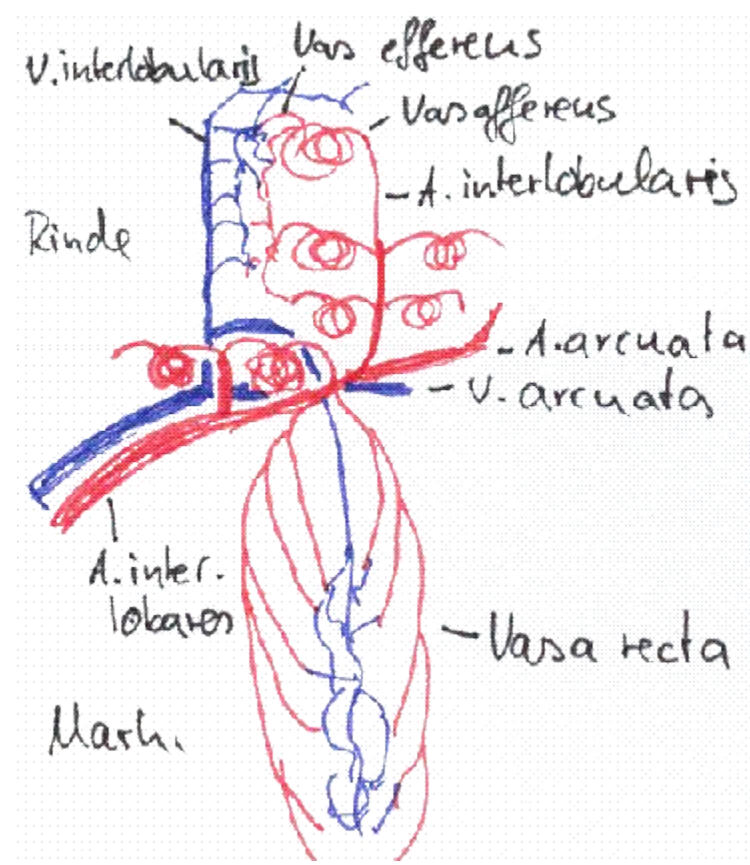 V. interlobularis
Vas efferens
Vas afferens
- A. interlobularis
Rinde
- A. arcuata
- V. arcuata
A. inter.
lobares
- Vasa recta
Mark.